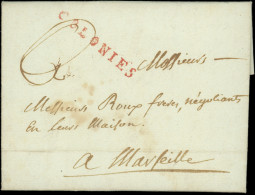 COLONIES
Messieurs
Messieurs Roux freres, négotiants
En Leurs Maison.
a Marseille